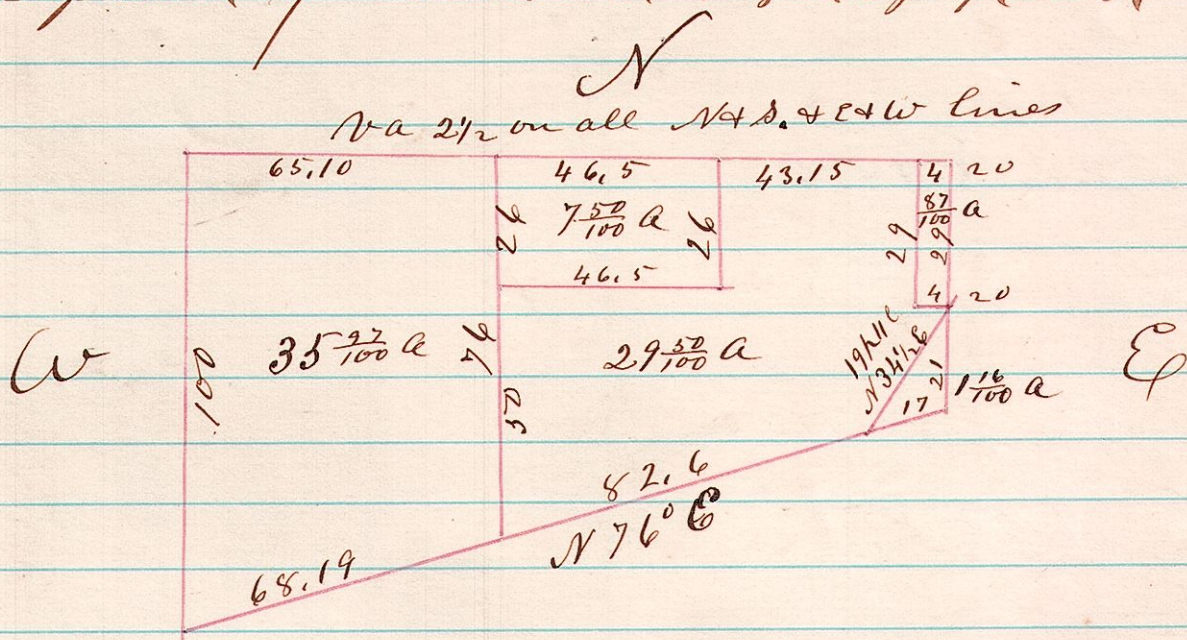 N
Va 2½ on all N & S. & E & W lines
65,10 46,5 43,15 4 20
7 50/100 a
87/100 a
26 26 29 29
46,5
4 20
W
100
35 97/100 a
76
50
29 50/100 a
N 34½ E
21
17
1 16/100 a
E
82,6
N 76° E
68,19